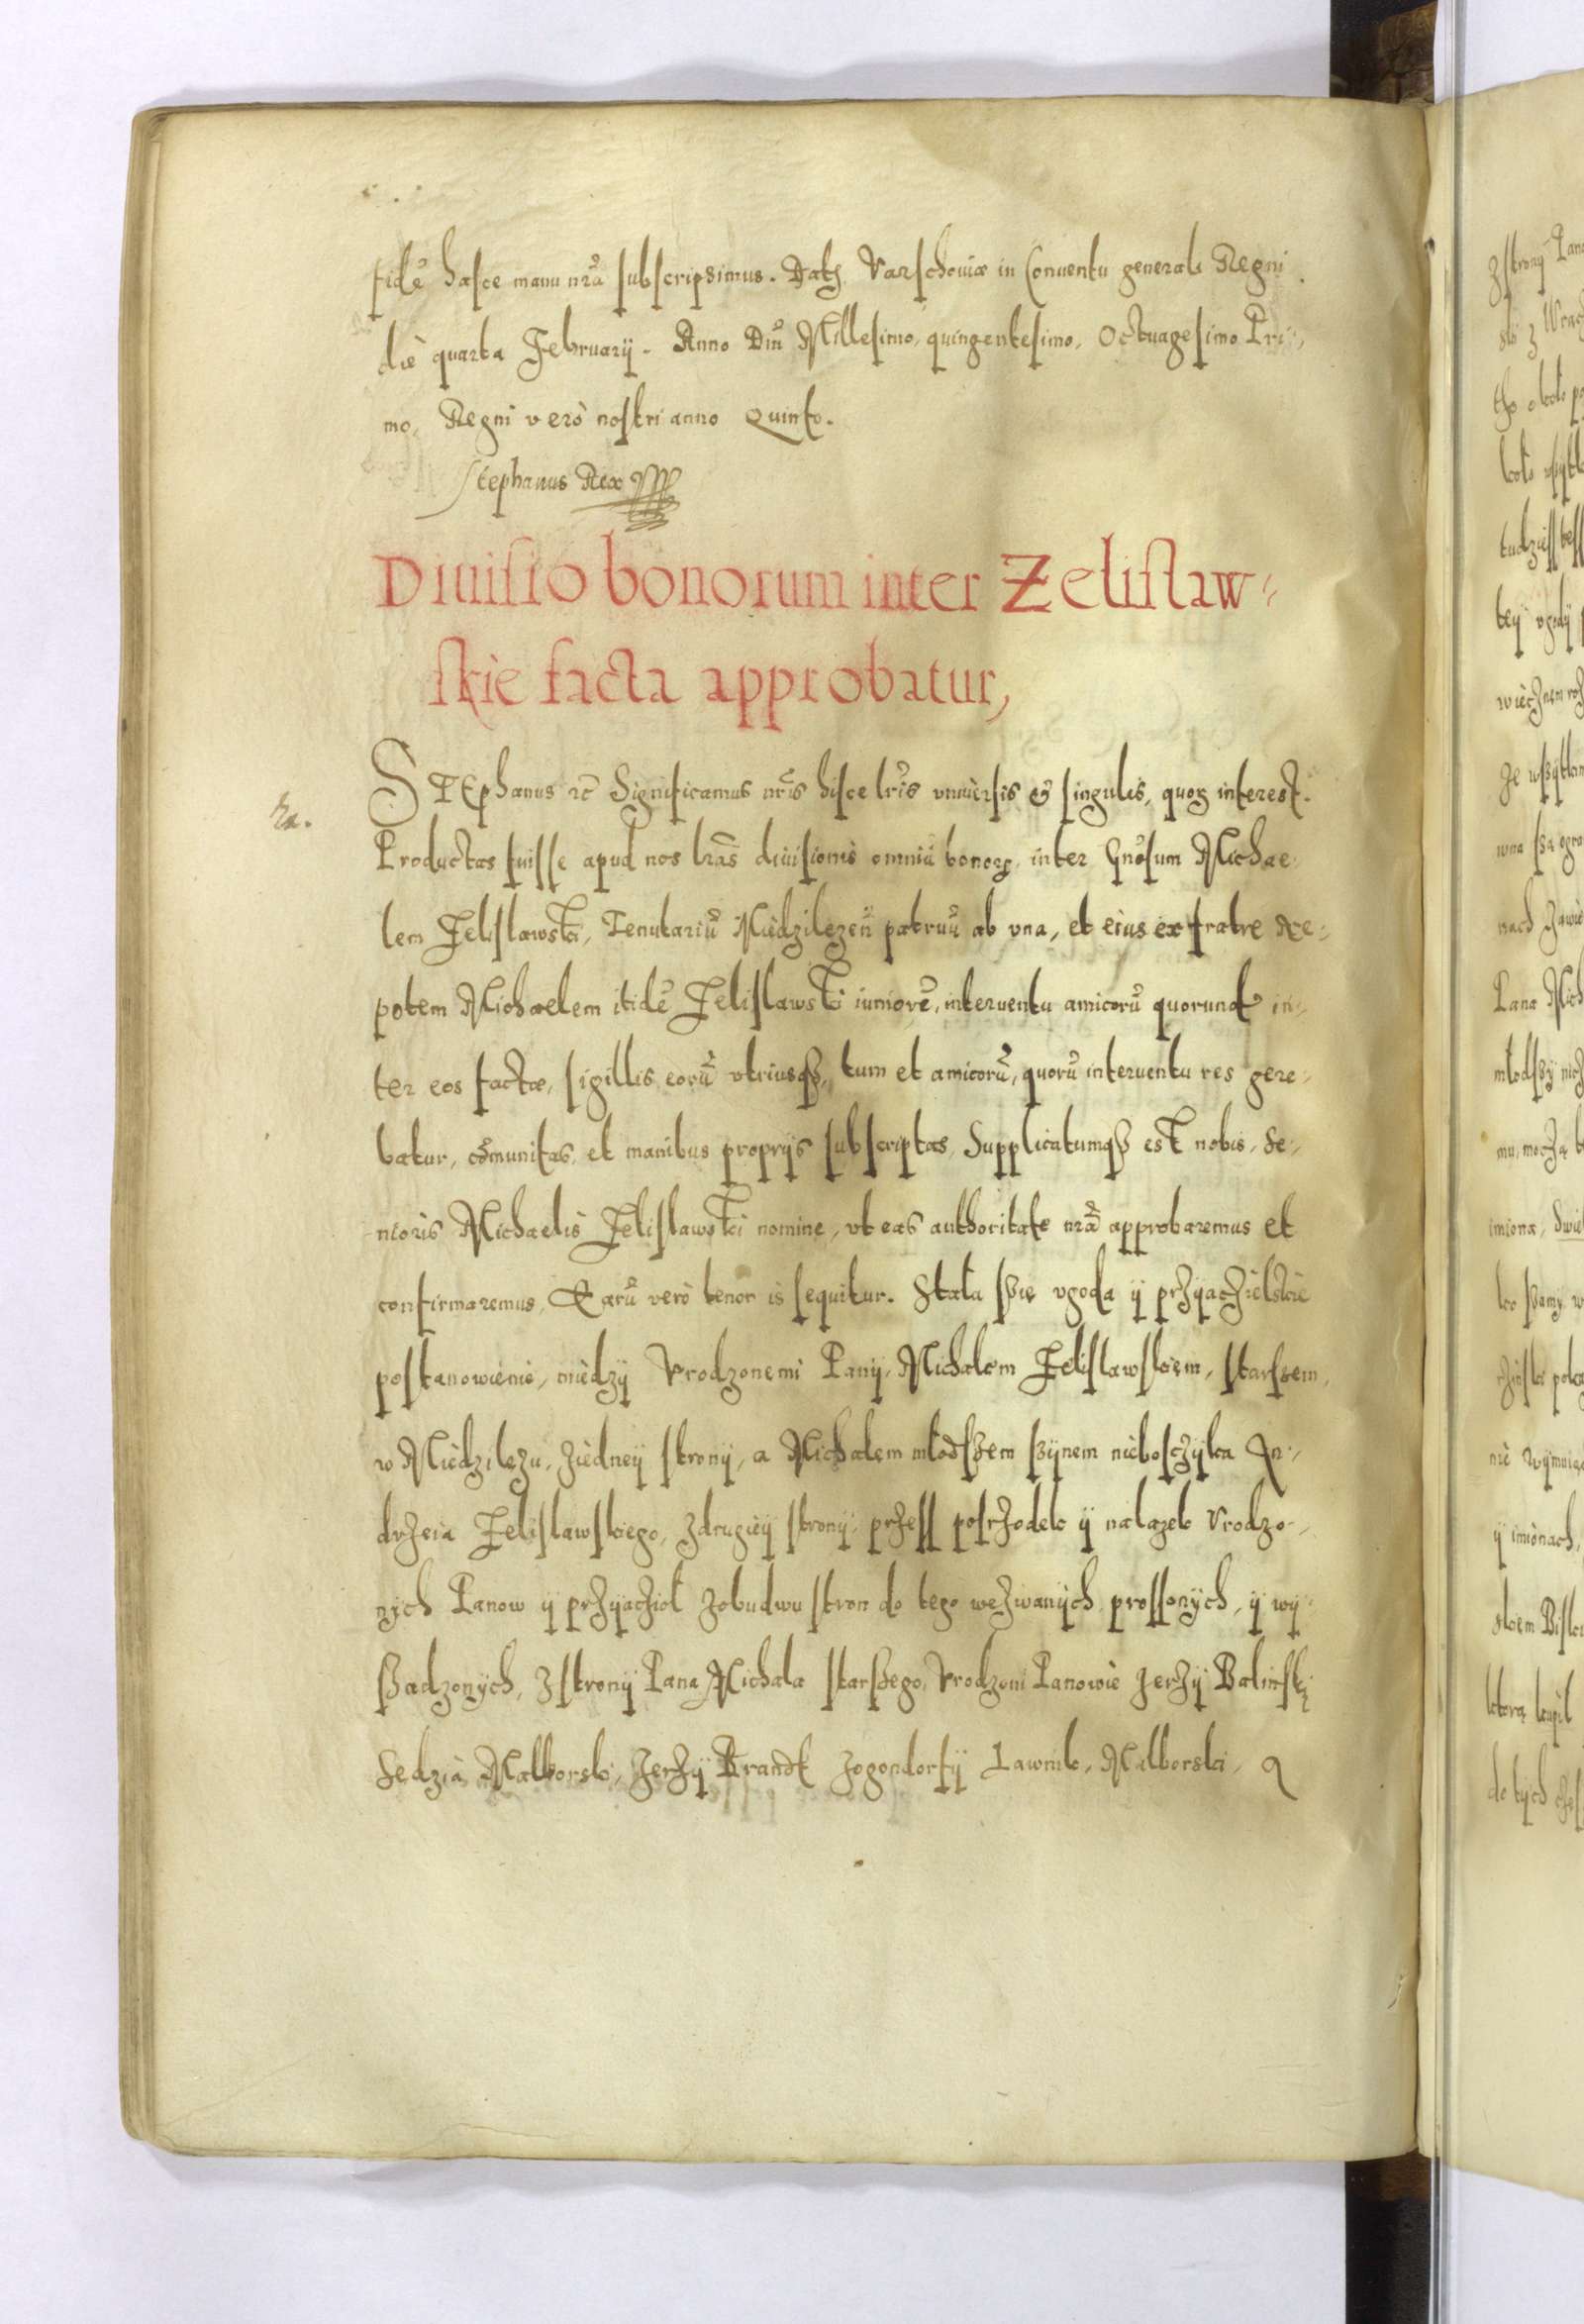 fidē hasce manu nrā subscripsimus. Datꝫ Varschouiæ in Conuentu generali Regni
die quarta Februarij. Anno Dnī Millesimo, quingentesimo, Octuagesimo Pri-
mo, Regni verò nostri anno Quinto.
Stephanus Rex
Diuisio bonorum inter Zelislaw-
skie facta approbatur,
STEphanus ꝛc̄ Significamus nr̄is hisce lr̄is vniuersis & singulis, quoꝝ interest.
Productas fuisse apud nos lrās diuisionis omniū bonoꝝ, inter Gnōsum Michae-
lem Zelislawski, Tenutariū Miedzilezeñ patruū ab vna, et eius ex fratre Ne-
potem Michaelem itidē Zelislawski iuniorē, interuentu amicorū quorund in-
ter eos factæ, sigillis eorū vtriusqȝ, tum et amicorū, quorū interuentu res gere-
batur, cōmunitas, et manibus proprijs subscriptas, Supplicatumqȝ est nobis, Se-
nioris Michaelis Zelislawski nomine, vt eas authoritate nrā approbaremus et
confirmaremus, Earū verò tenor is sequitur. Stała ssię vgoda ÿ przÿaczielskie
postanowienie, miedzÿ Vrodzonemi Panÿ, Michałem Zelislawskiem, starsem,
w Miedzilezu, ziedneÿ stronÿ, a Michałem młodszem szÿnem nieboszczÿka An-
drzeia Zelislawskiego, zdrugieÿ stronÿ, przess posrzodek ÿ nalazek Vrodzo-
nÿch Panow ÿ przÿaczioł zobudwu stron do tego wezwanÿch, prossonÿch, ÿ wÿ-
ssadzonÿch, zstronÿ Pana Michała starszego, Vrodzoni Panowie Jerzÿ Balinski
Sedzia Malborski, Jerzÿ Brandt zogondorfÿ Lawnik, Malborski, a